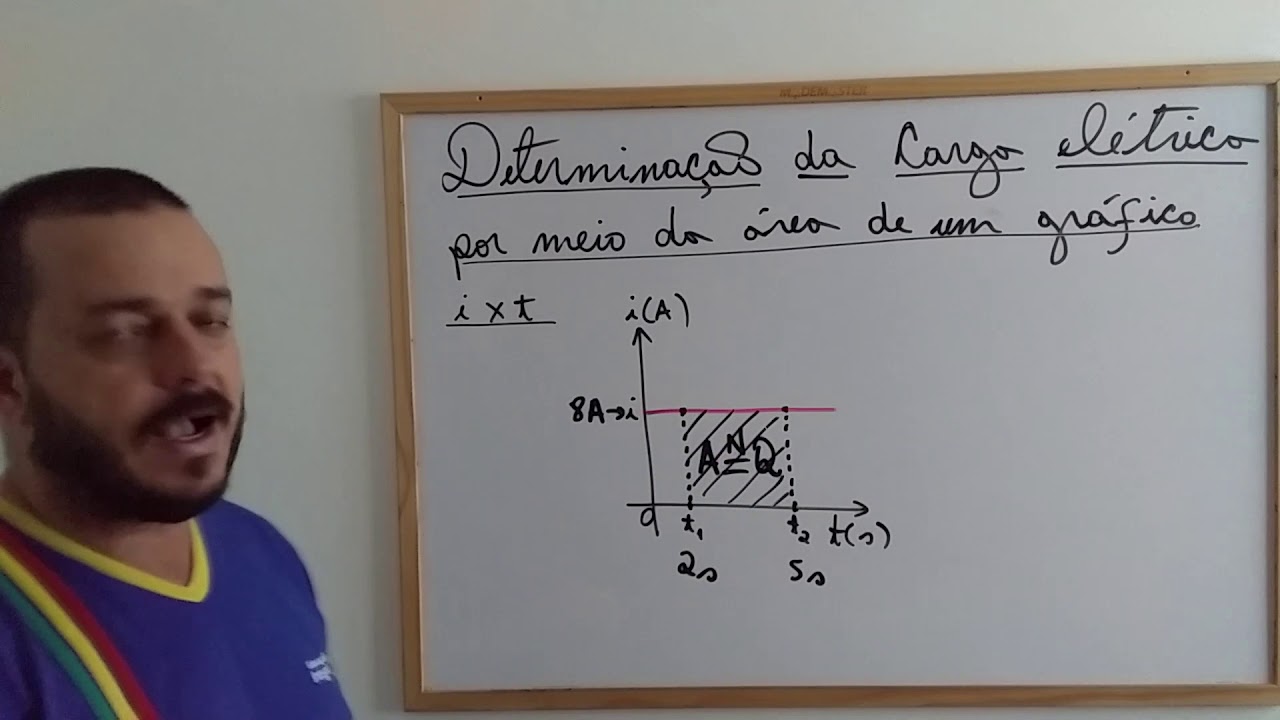 Determinação da Carga elétrica
por meio da área de um gráfico
i x t
i(A)
8A→i
A N= Q
0
t₁ t₂ t(s)
2s 5s